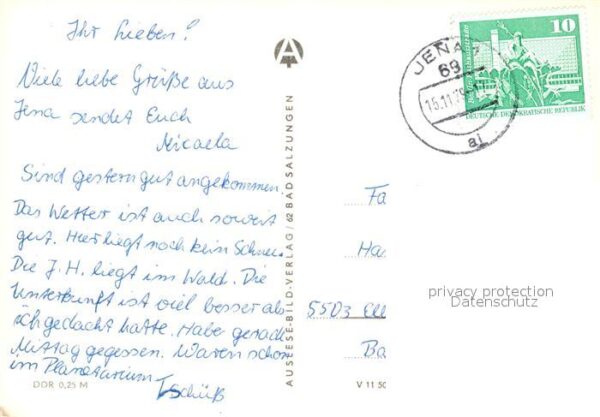 Ihr Lieben!
Viele liebe Grüße aus
Jena sendet Euch
Micaela
Sind gestern gut angekommen.
Das Wetter ist auch soweit
gut. Hier liegt noch kein Schnee.
Die J.H. liegt im Wald. Die
Unterkunft ist viel besser als
ich gedacht hatte. Habe gerade
Mittag gegessen. Waren schon
im Planetarium
Tschüß
DDR 0,25 M
AUSLESE-BILD-VERLAG / 62 BAD SALZUNGEN
V 11 50
JENA 7
69
15.11.79
ai
10
DEUTSCHE DEMOKRATISCHE REPUBLIK
Fa
Ha
privacy protection
Datenschutz
5503
Ba